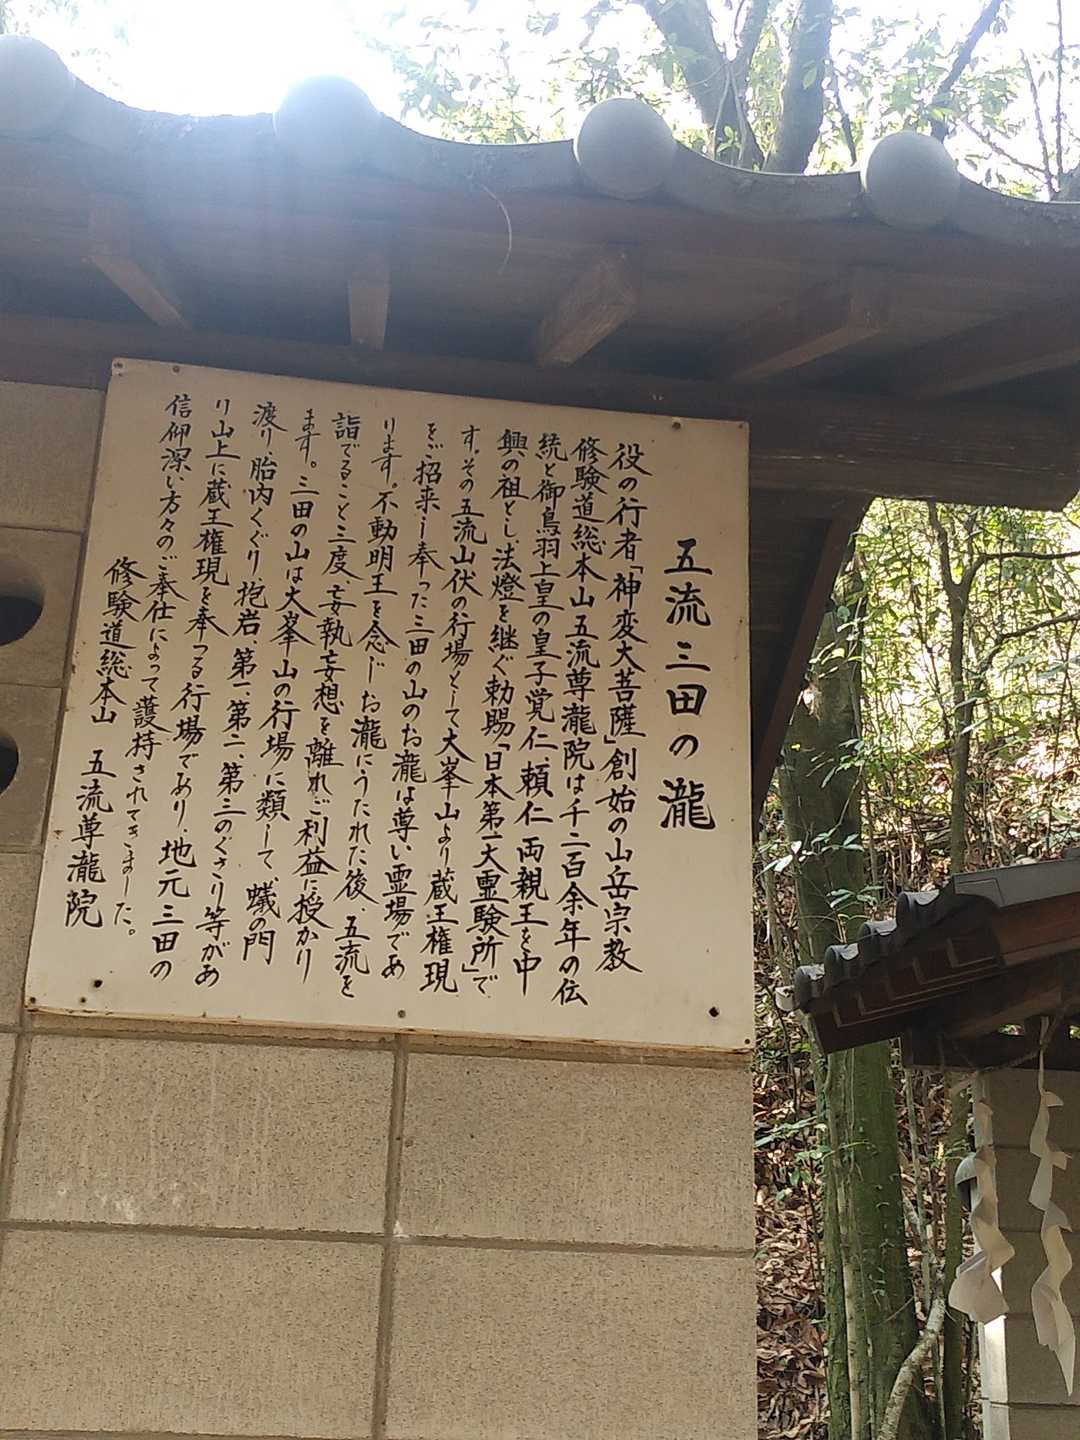 五流三田の瀧
役の行者「神変大菩薩」創始の山岳宗教
修験道総本山五流尊瀧院は千二百余年の伝
統と御鳥羽上皇の皇子覚仁、頼仁両親王を中
興の祖とし、法燈を継ぐ勅賜「日本第一大霊験所」で
す。その五流山伏の行場として大峯山より蔵王権現
をご招来し奉った三田の山のお瀧は尊い霊場であ
ります。不動明王を念じお瀧にうたれた後、五流を
詣でること三度、妄執妄想を離れご利益に授かり
ます。三田の山は大峯山の行場に類して、蟻の門
渡り、胎内くぐり、抱岩、第一、第二、第三のぐさり等があ
り山上に蔵王権現を奉つる行場であり、地元三田の
信仰深い方々のご奉仕によって護持されてきました。
修験道総本山 五流尊瀧院